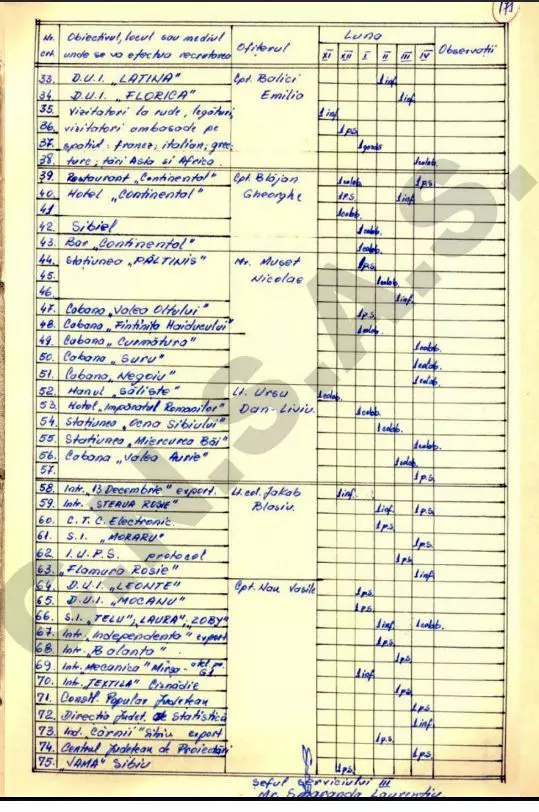 171
Nr. crt. Obiectivul, locul sau mediul unde se va efectua recrutarea Ofiterul Luna XI XII I II III IV Observații
33. D.U.I. „LATINA" Cpt. Balici 1 inf.
34. D.U.I. „FLORICA" Emilia 1 inf.
35. vizitatori la rude, legături, 1 inf.
36. vizitatori ambasade pe 1 p.s.
37. spatiul: francez; italian; grec 1 gazdă
38. turc; tări Asia si Africa. 1 colab.
39. Restaurant „Continental" Cpt. Blăjan 1 colab. 1 p.s.
40. Hotel „Continental" Gheorghe 1 P.S. 1 inf.
41 1 colab.
42. Sibiel 1 colab.
43. Bar „Continental" 1 colab.
44. Statiunea „PĂLTINIS" Mr. Muset 1 p.s.
45. Nicolae 1 colab.
46. 1 inf.
47. Cabana „Valea Oltului" 1 p.s.
48. Cabana „Fintinita Haiducului" 1 colab.
49. Cabana „Curmătura" 1 colab.
50. Cabana „Suru" 1 colab.
51. Cabana „Negoiu" 1 colab.
52. Hanul „Săliste" Lt. Ursu 1 colab.
53. Hotel „Impăratul Romanilor" Dan-Liviu 1 colab.
54. Statiunea „Ocna Sibiului" 1 colab.
55. Statiunea „Miercurea Băi" 1 colab.
56. Cabana „Valea Aurie" 1 colab.
57. 1 p.s.
58. Intr. „13 Decembrie" export. Lt. col. Jakab 1 inf.
59. Intr. "STEAUA ROSIE" Blasiu. 1 inf. 1 p.s.
60. C.T.C. Electronic. 1 p.s.
61. S.I. „MORARU" 1 p.s.
62. I.U.P.S. protocol 1 p.s.
63. „Flamura Rosie" 1 inf.
64. D.U.I. „LEONTE" Cpt. Nan Vasile 1 p.s.
65. D.U.I. „MOCANU" 1 p.s.
66. S.I. „TELU"; „LAURA", „ZOBY" 1 inf. 1 colab.
67. Intr. „Independenta" export 1 p.s.
68. Intr. „Balanta" 1 p.s.
69. Intr. Mecanica "Mirsa - 1 inf.
70. Intr. „TEXTILA" Cisnădie 1 p.s.
71. Consil. Popular Judetean 1 p.s.
72. Directia Judet. de Statistică 1 inf.
73. Ind. Cărnii" Sibiu export 1 p.s.
74. Centrul Judetean de Proiectări 1 p.s.
75. „VAMA" Sibiu 1 p.s.
Seful serviciului III
Mr. Smaranda Laurentiu
C.N.S.A.S.